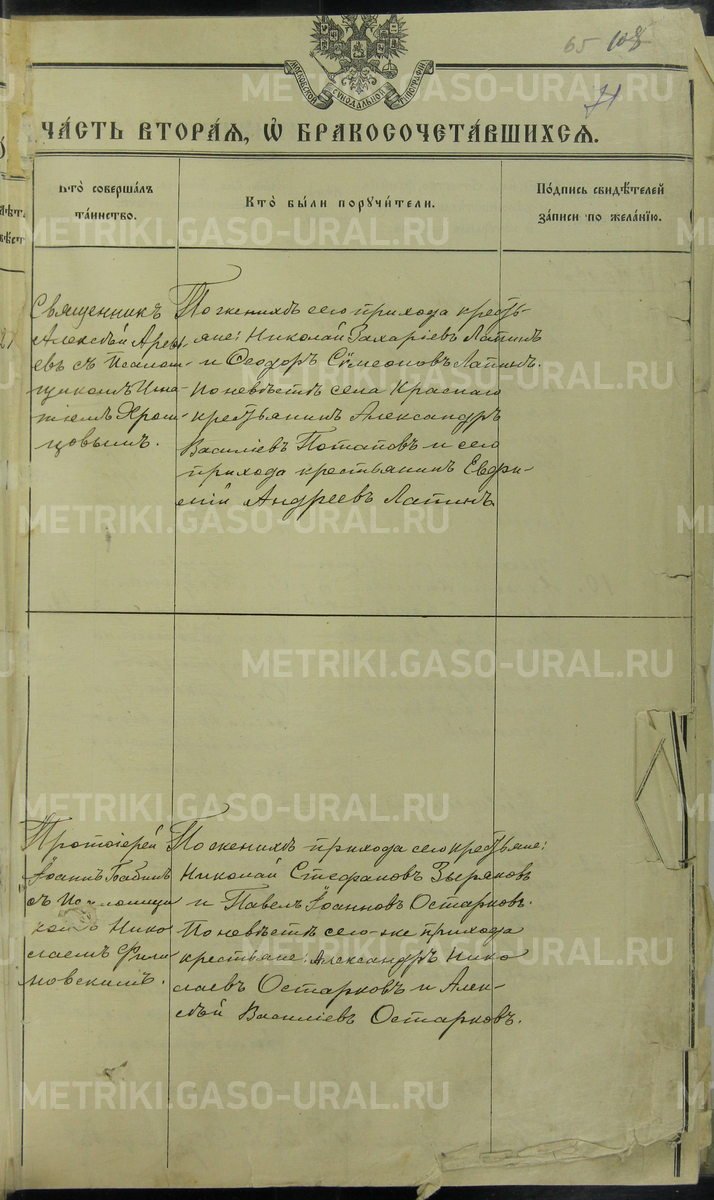 65 108
71
МОСКОВСКОЙ СѴНОДАЛЬНОЙ ТИПОГРАФІИ
ЧА́СТЬ ВТОРА́Я, Ѡ БРАКОСОЧЕТА́ВШИХСЯ.
Кто̀ соверша́лъ
та́инство.
Кто̀ бы́ли поручи́тели.
По́дпись свидѣ́телей
за́писи по жела́нїю.
лѣт.
вѣст
21
Священникъ
Алексѣй Арефь
евъ съ Псалом-
щикомъ Игна
тіемъ Хром-
цовымъ.
По женихѣ сего прихода кресть-
яне: Николай Захаріевъ Лапинъ
и Ѳеодоръ Сѵмеоновъ Лапинъ.
По невѣстѣ села Краснаго
крестьянинъ Александръ
Василіевъ Потаповъ и сего
прихода крестьянинъ Евфи-
мій Андреевъ Лапинъ
Протоіерей
Іоаннъ Бабинъ
съ Псаломщи
комъ Нико
лаемъ Фили
новскимъ.
По женихѣ прихода сего крестьяне:
Николай Стефановъ Зыряновъ
и Павелъ Іоанновъ Остарковъ.
По невѣстѣ сего-же прихода
крестьяне: Александръ Нико
лаевъ Остарковъ и Алек-
сѣй Василіевъ Остарковъ.
METRIKI.GASO-URAL.RU